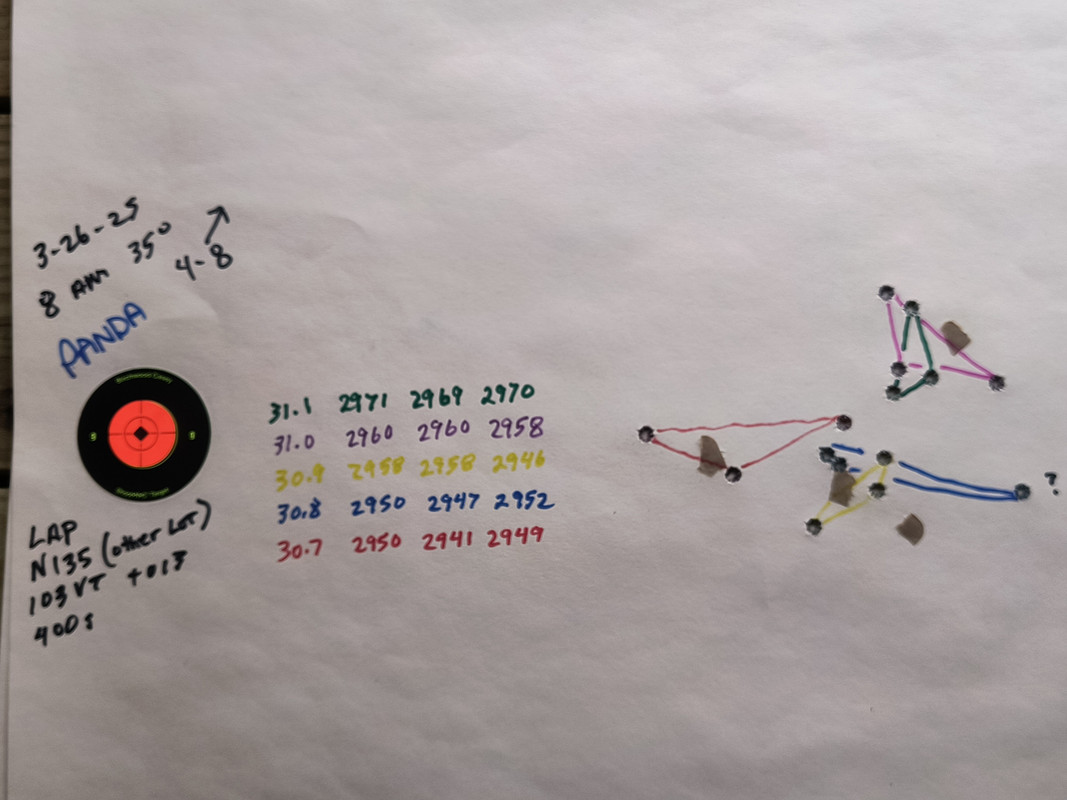 3-26-25
8 AM 35°
4-8
PANDA
Birchwood Casey
9 9
Shoot•N•C® Target
31.1 2971 2969 2970
31.0 2960 2960 2958
30.9 2958 2958 2946
30.8 2950 2947 2952
30.7 2950 2941 2949
LAP
N135 (other Lot)
103 VT +013
400s
?